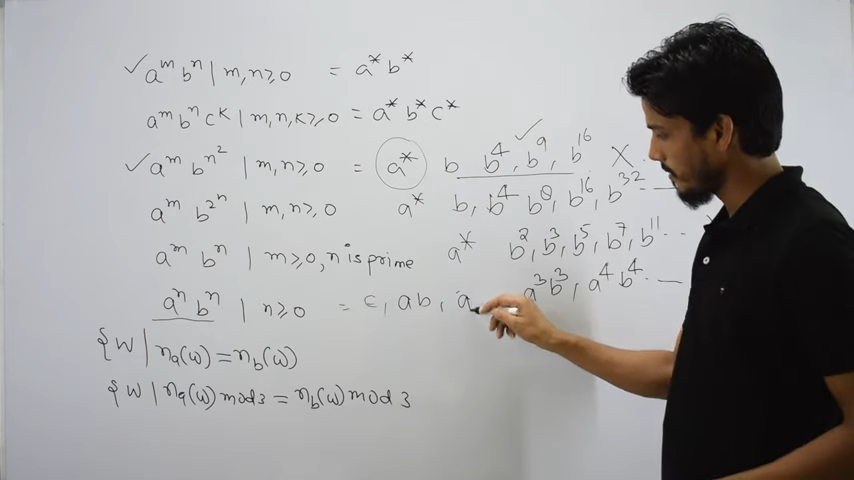 ✓ aᵐ bⁿ | m,n≥0 = a* b*
aᵐ bⁿ cᵏ | m,n,k≥0 = a* b* c*
✓ aᵐ b^n² | m,n≥0 = a* b, b⁴, b⁹, b¹⁶ ✓ X
aᵐ b^2ⁿ | m,n≥0 a* b, b⁴ b⁸, b¹⁶, b³² —
aᵐ bⁿ | m≥0, n is prime a* b², b³, b⁵, b⁷, b¹¹ ...
aⁿ bⁿ | n≥0 = ε, ab, a a³b³, a⁴b⁴ . —
{W | nₐ(w) = n_b(w)
{W | nₐ(w) mod 3 = n_b(w) mod 3